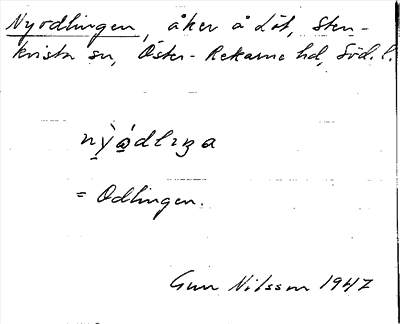 Nyodlingen, åker å Löt, Sten-
kvista sn, Öster-Rekarne hd, Söd. l.
nỳọ́dlıŋa
= Odlingen.
Gun Nilsson 1947